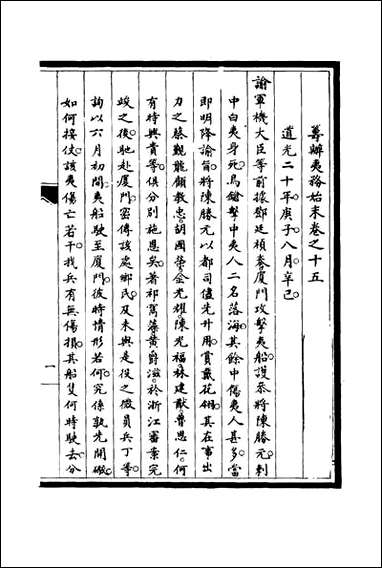 籌辦夷務始末卷之十五
道光二十年庚子八月辛巳
諭軍機大臣等前據鄧廷楨奏廈門攻擊夷船護參將陳勝元刺
中白夷身死鳥鎗擊中夷人二名落海其餘中傷夷人甚多當
即明降諭旨將陳勝元以都司儘先升用賞戴花翎其在事出
力之蔡覲龍顧教忠胡國榮金光耀陳光福林建猷普恩仁何
有特興貴等俱分別施恩矣著祁寯藻黃爵滋於浙江審案完
竣之後馳赴廈門密傳該處鄉民及未與是役之微員兵丁等
詢以六月初間夷船駛至廈門彼時情形若何究係孰先開礮
如何接仗該夷傷亡若干我兵有無傷損其船隻何時駛去分
一